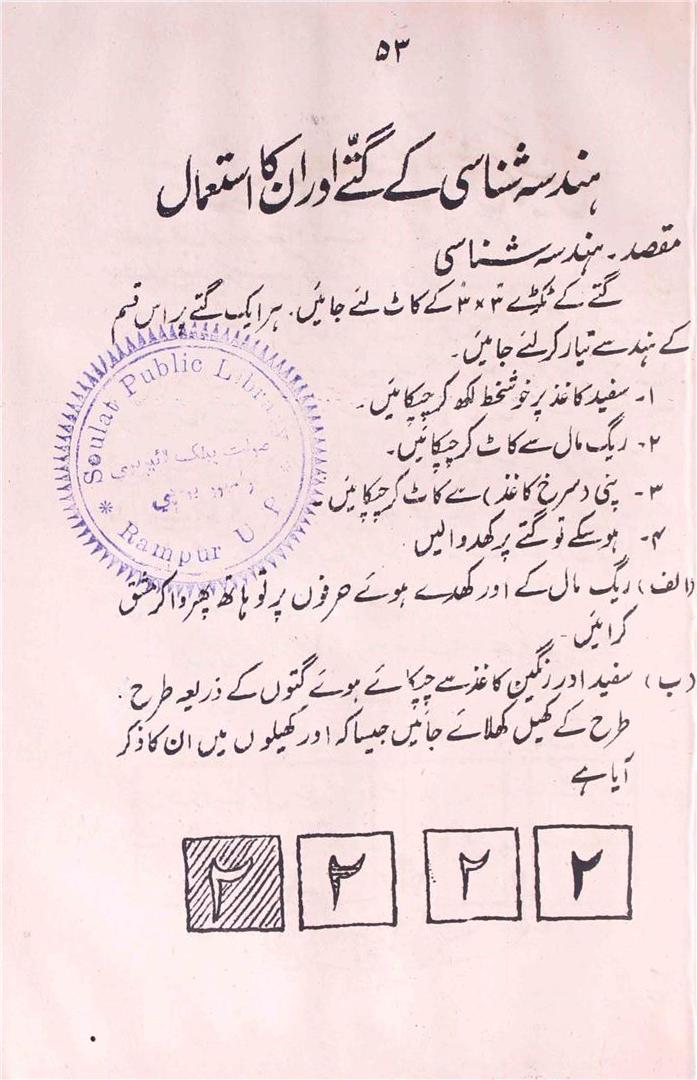 ۵۳
ہندسہ شناسی کے گتّے اور ان کا استعمال
مقصد۔ ہندسہ شناسی
گتے کے ٹکڑے ۳" × ۳" کے کاٹ لئے جائیں۔ ہر ایک گتے پر اس قسم
کے ہندسے تیار کر لئے جائیں۔
۱۔ سفید کاغذ پر خوشخط لکھ کر چپکائیں۔
۲۔ ریگ مال سے کاٹ کر چپکائیں۔
۳۔ پنی (سرخ کاغذ) سے کاٹ کر چپکائیں۔
۴۔ ہو سکے تو گتے پر کھدوالیں
(الف) ریگ مال کے اور کھدے ہوئے حرفوں پر تو ہاتھ پھرواکر مشق
کرائیں۔
(ب) سفید اور رنگین کاغذ سے چپکائے ہوئے گتوں کے ذریعہ طرح
طرح کے کھیل کھلائے جائیں جیسا کہ اور کھیلوں میں ان کا ذکر
آیا ہے
۲ ۲ ۲ ۲
Soulat Public Library
صولت پبلک لائبریری
رامپور یو پی
* Rampur U. P. *